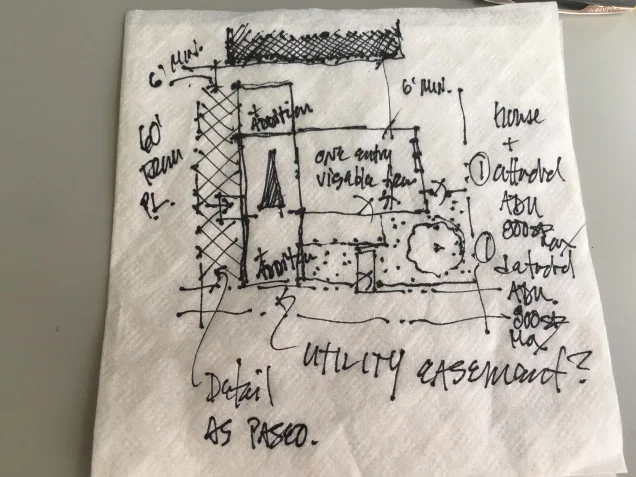 6' MIN.
6' MIN.
+
Addition
60'
FROM
PL.
one entry
visable from
house
+
① attached
ADU
800SF
Max
Addition
① Detatched
ADU.
800SF
Max
UTILITY EASEMENT?
Detail
AS PASEO.